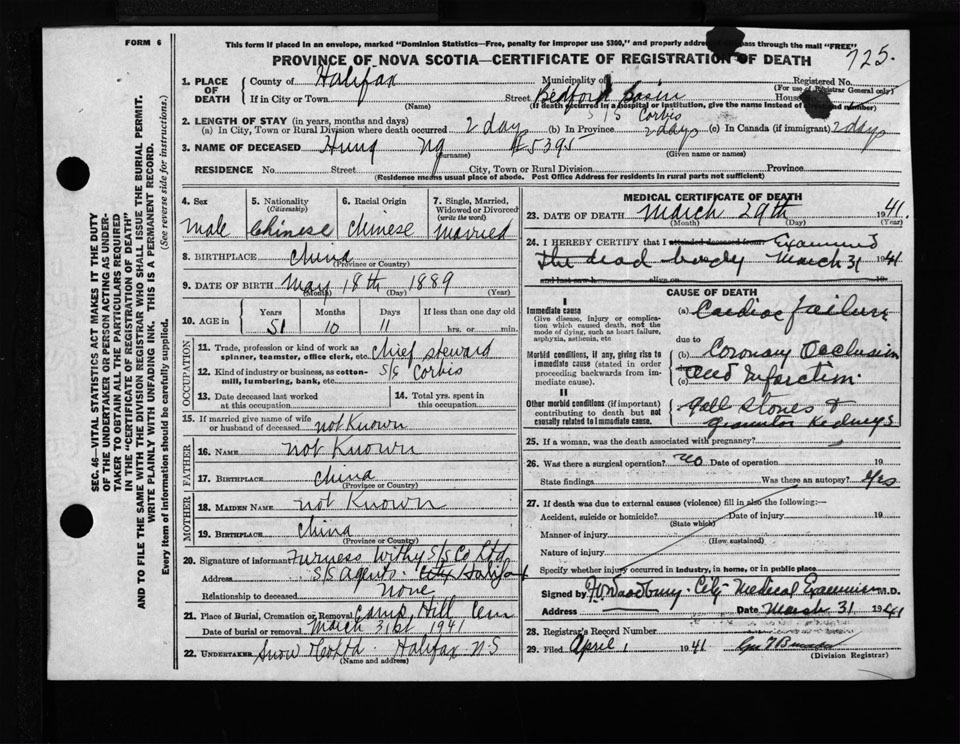 FORM 6
This form if placed in an envelope, marked "Dominion Statistics—Free, penalty for improper use $300," and properly addressed, pass through the mail "FREE"
PROVINCE OF NOVA SCOTIA—CERTIFICATE OF REGISTRATION OF DEATH
725.
1. PLACE OF DEATH
County of Halifax
Municipality of
Registered No.
(For use of Registrar General only)
If in City or Town
(Name)
Street Bedford Basin
House
(If death occurred in a hospital or institution, give the name instead of
S/S Corbis
2. LENGTH OF STAY (in years, months and days)
(a) In City, Town or Rural Division where death occurred 2 days (b) In Province 2 days (c) In Canada (if immigrant) 2 days
3. NAME OF DECEASED Hung Ng #5395
(Surname) (Given name or names)
RESIDENCE No. Street City, Town or Rural Division Province
(Residence means usual place of abode. Post Office Address for residents in rural parts not sufficient)
4. Sex
Male
5. Nationality
(Citizenship)
Chinese
6. Racial Origin
Chinese
7. Single, Married, Widowed or Divorced
(write the word)
Married
8. BIRTHPLACE China
(Province or Country)
9. DATE OF BIRTH May 18th 1889
(Month) (Day) (Year)
10. AGE in Years 51 Months 10 Days 11 If less than one day old
hrs. or min.
OCCUPATION
11. Trade, profession or kind of work as spinner, teamster, office clerk, etc. Chief steward
12. Kind of industry or business, as cotton-mill, lumbering, bank, etc. S/S Corbis
13. Date deceased last worked at this occupation
14. Total yrs. spent in this occupation
15. If married give name of wife or husband of deceased not Known
FATHER
16. NAME not Known
17. BIRTHPLACE China
(Province or Country)
MOTHER
18. MAIDEN NAME not Known
19. BIRTHPLACE China
(Province or Country)
20. Signature of informant Furness Withy S/S Co Ltd
Address S/S Agents City Halifax
Relationship to deceased none
21. Place of Burial, Cremation or Removal Camp Hill Cem
Date of burial or removal March 31st 1941
22. UNDERTAKER Snow & Co Ltd. Halifax N S
(Name and address)
MEDICAL CERTIFICATE OF DEATH
23. DATE OF DEATH March 29th 1941.
(Month) (Day) (Year)
24. I HEREBY CERTIFY that I attended deceased from Examined
The dead body March 31 1941
and last saw h alive on 19
CAUSE OF DEATH
I
Immediate cause
Give disease, injury or complication which caused death, not the mode of dying, such as heart failure, asphyxia, asthenia, etc
(a) Cardiac failure
due to
Morbid conditions, if any, giving rise to immediate cause (stated in order proceeding backwards from immediate cause).
(b) Coronary Occlusion
(c) and Infarction
II
Other morbid conditions (if important) contributing to death but not causally related to immediate cause.
Gall stones &
Kidneys
25. If a woman, was the death associated with pregnancy?
26. Was there a surgical operation? No Date of operation 19
State findings Was there an autopsy? Yes
27. If death was due to external causes (violence) fill in also the following:—
Accident, suicide or homicide? Date of injury 19
(State which)
Manner of injury
(How sustained)
Nature of injury
Specify whether injury occurred in industry, in home, or in public place
Signed by City Medical Examiner M.D.
Address Date March 31 1941
28. Registrar's Record Number
29. Filed April 1 1941
(Division Registrar)
SEC. 46—VITAL STATISTICS ACT MAKES IT THE DUTY
OF THE UNDERTAKER OR PERSON ACTING AS UNDER-
TAKER TO OBTAIN ALL THE PARTICULARS REQUIRED
IN THE "CERTIFICATE OF REGISTRATION OF DEATH"
AND TO FILE THE SAME WITH THE DIVISION REGISTRAR WHO SHALL ISSUE THE BURIAL PERMIT.
WRITE PLAINLY WITH UNFADING INK. THIS IS A PERMANENT RECORD.
Every item of information should be carefully supplied. (See reverse side for instructions.)